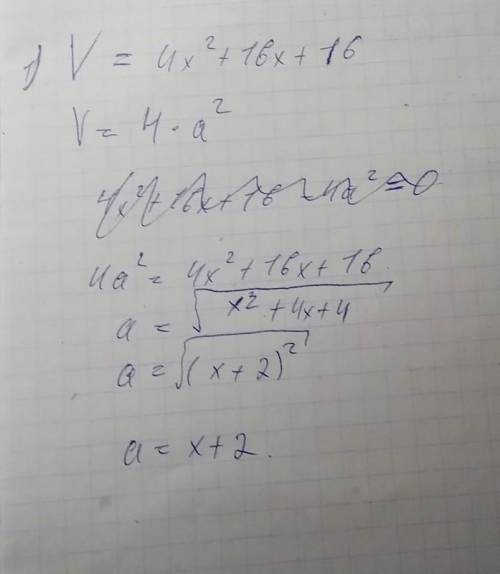 1) V = 4x² + 16x + 16
V = 4 · a²
4x² + 16x + 16 - 4a² = 0
4a² = 4x² + 16x + 16
a = √(x² + 4x + 4)
a = √((x + 2)²)
a = x + 2.